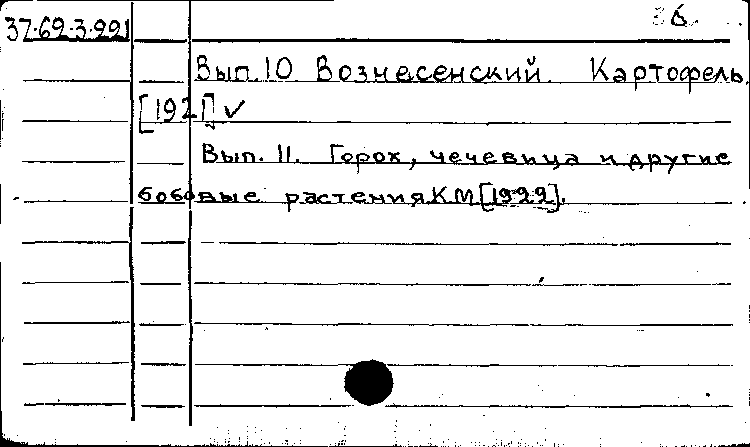 37-69-3-991
Вып. 10 Вознесенский. Картофель.
[1921] ✓
Вып. 11. Горох, чечевица и другие
бобовые растения КМ [1922].